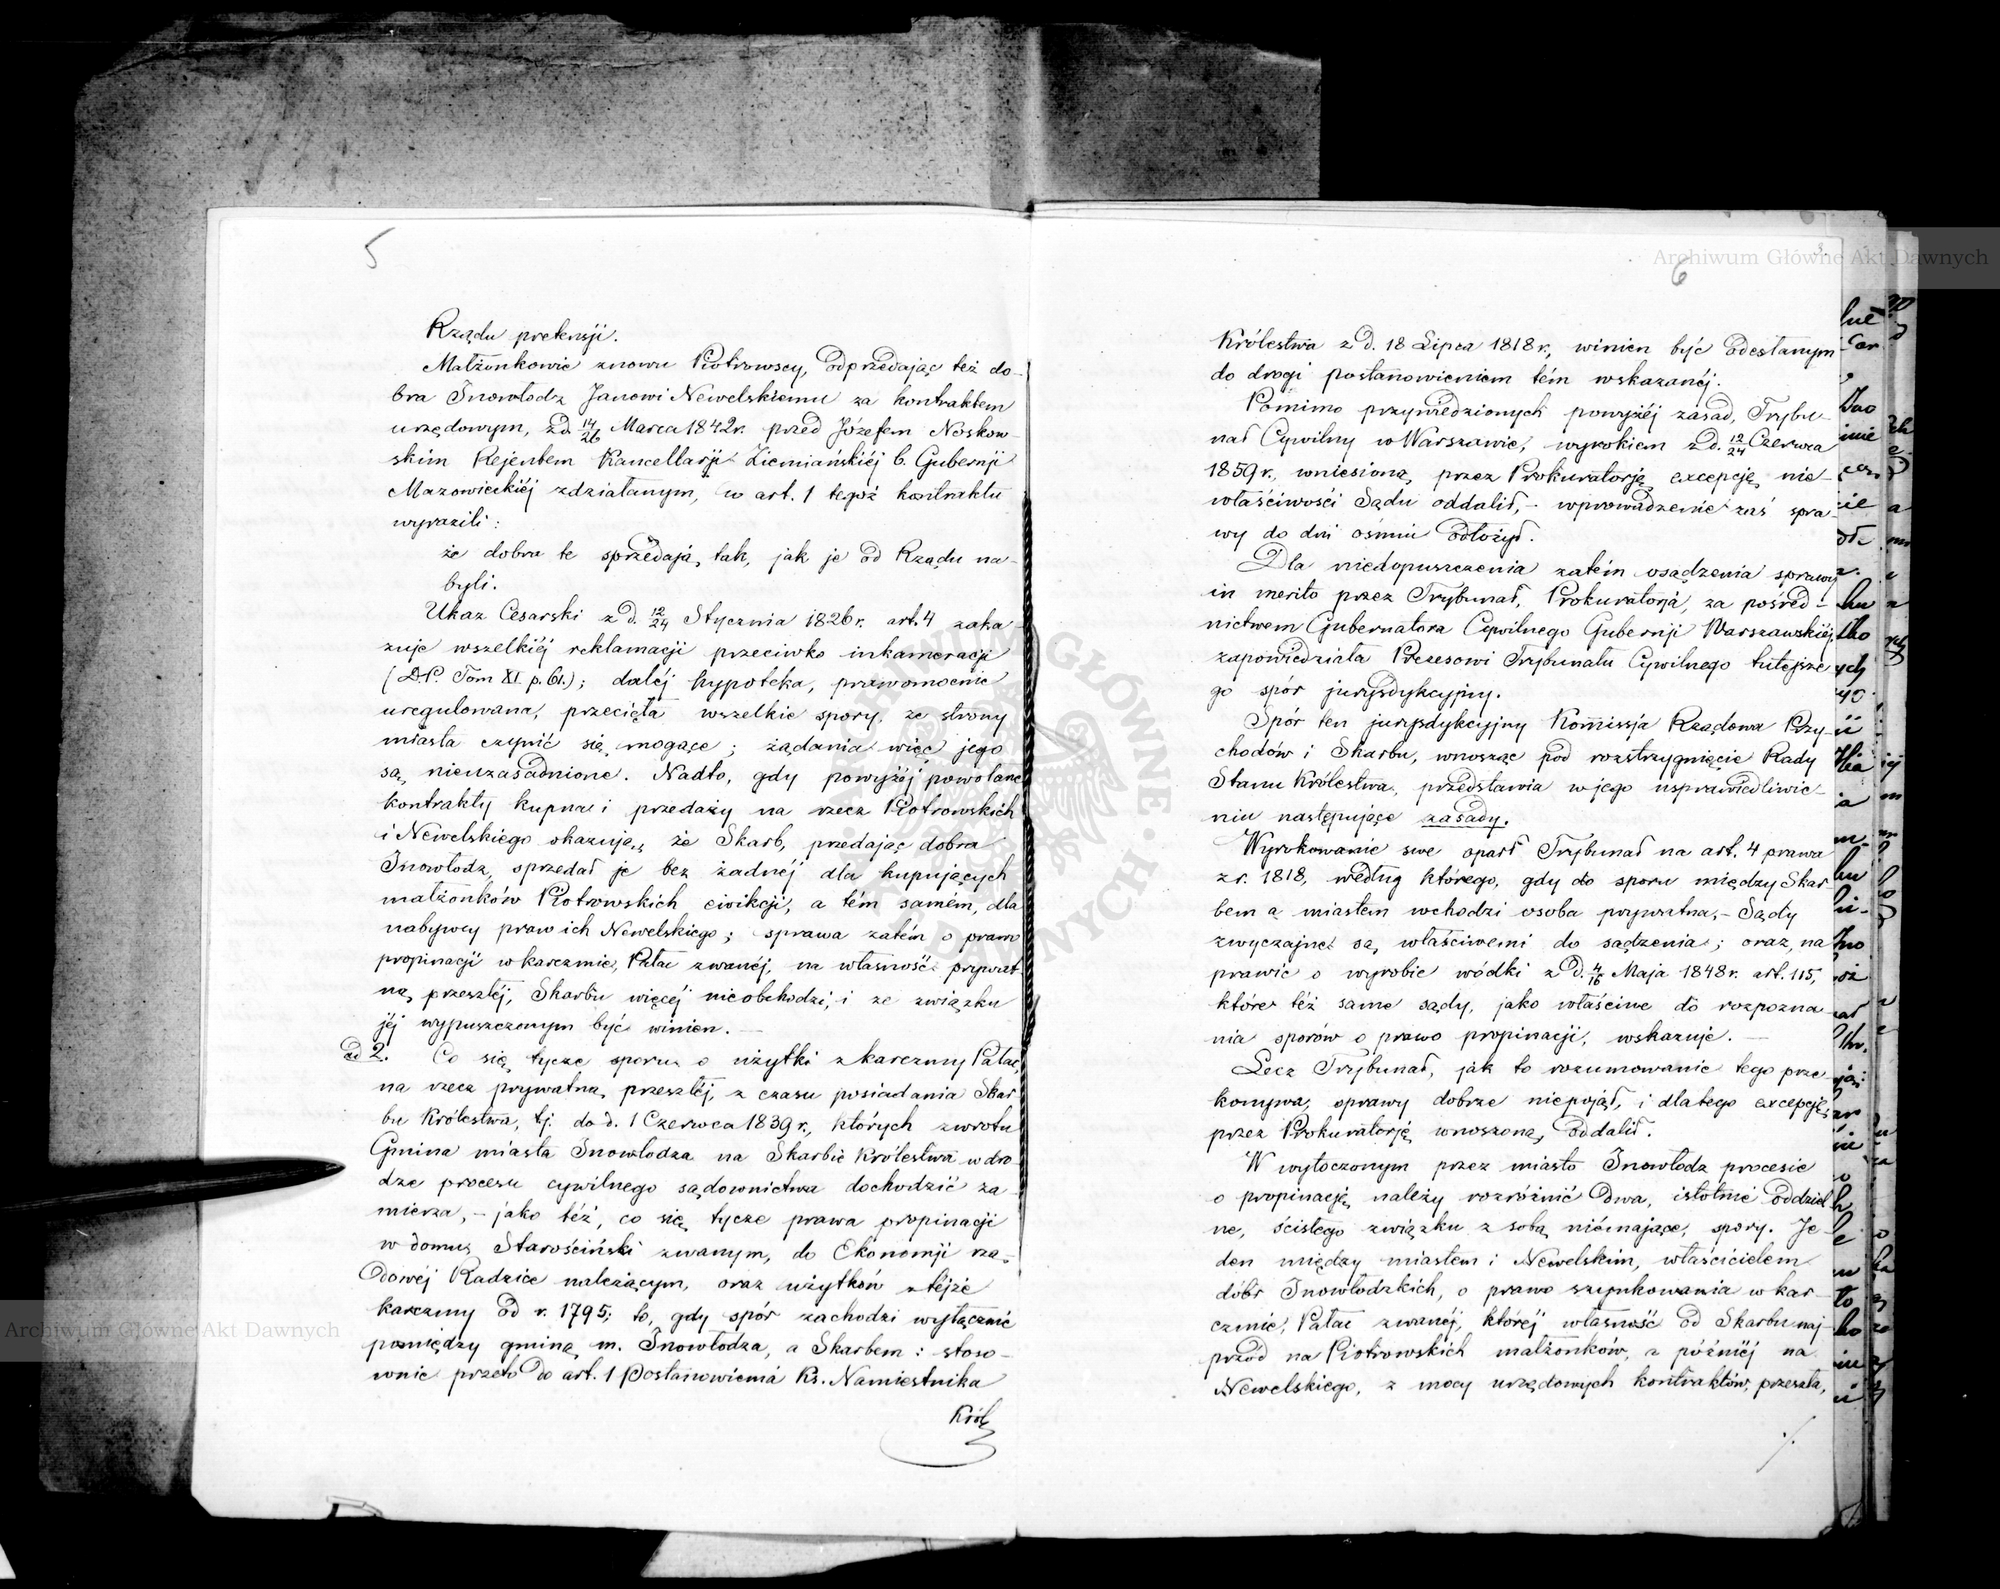 5
Rządu pretensji.
Małżonkowie znowu Piotrowscy, odprzedając też do-
bra Inowłodz Janowi Newelskiemu za kontraktem
urzędowym, z d. 14/26 Marca 1842 r. przed Józefem Noskow-
skim Rejentem Kancellarji Ziemiańskiéj b. Gubernji
Mazowieckiéj zdziałanym, w art. 1 tegoż kontraktu
wyrazili:
że dobra te sprzedają tak, jak je od Rządu na-
byli.
Ukaz Cesarski z d. 12/24 Stycznia 1826 r. art. 4 zaka-
zuje wszelkiéj reklamacji przeciwko inkameracji
(D.P. Tom XI. p. 61.); daléj hypoteka, prawomocnie
uregulowana, przecięła wszelkie spory, ze strony
miasta czynić się mogące; żądania więc jego
są nieuzasadnione. Nadto, gdy powyżéj powołane
kontrakty kupna i przedaży na rzecz Piotrowskich
i Newelskiego okazują, że Skarb, przedając dobra
Inowłodz, sprzedał je bez żadnéj dla kupujących
małżonków Piotrowskich ewikcji, a tém samém, dla
nabywcy praw ich Newelskiego; sprawa zatém o prawo
propinacji w karczmie, Pałac zwanéj, na własność prywat-
ną przeszłéj, Skarbu więcéj nieobchodzi, i ze związku
jéj wypuszczonym być winien. —
ad 2. Co się tycze sporu o użytki z karczmy Pałac,
na rzecz prywatną przeszłéj, z czasu posiadania Skar-
bu Królestwa, tj. do d. 1 Czerwca 1839 r., których zwrotu
Gmina miasta Inowłodza na Skarbie Królestwa w dro-
dze procesu cywilnego sądownictwa dochodzić za-
mierza, – jako téż, co się tycze prawa propinacji
w domu, Starościński zwanym, do Ekonomji rzą-
dowéj Radzice należącym, oraz użytków z tejże
karczmy od r. 1795; to, gdy spór zachodzi wyłącznie
pomiędzy gminą m. Inowłodza, a Skarbem: stoso-
wnie przeto do art. 1 Postanowienia Ks. Namiestnika
Król
6
Królestwa z d. 18 Lipca 1818 r., winien być odesłanym
do drogi postanowieniem tém wskazanéj.
Pomimo przywiedzionych powyżéj zasad, Trybu-
nał Cywilny w Warszawie, wyrokiem z d. 12/24 Czerwca
1859 r., wniesioną przez Prokuratorję excepcję nie-
właściwości Sądu oddalił, – wprowadzenie zaś spra-
wy do dni ośmiu odłożył.
Dla niedopuszczenia zatém osądzenia sprawy
in merito przez Trybunał, Prokuratorja, za pośred-
nictwem Gubernatora Cywilnego Gubernji Warszawskiéj,
zapowiedziała Prezesowi Trybunału Cywilnego tutejsze-
go spór jurysdykcyjny.
Spór ten jurysdykcyjny Kommissja Rządowa Przy-
chodów i Skarbu, wnosząc pod rozstrzygnięcie Rady
Stanu Królestwa, przedstawia w jego usprawiedliwie-
niu następujące zasady.
Wyrokowanie swe oparł Trybunał na art. 4 prawa
z r. 1818, według którego, gdy do sporu między Skar-
bem a miastem wchodzi osoba prywatna, – Sądy
zwyczajne są właściwemi do sądzenia; oraz, na
prawie o wyrobie wódki z d. 4/16 Maja 1848 r. art. 115,
które téż same sądy, jako właściwe do rozpozna-
nia sporów o prawo propinacji, wskazuje. —
Lecz Trybunał, jak to rozumowanie tego prze-
konywa, sprawy dobrze niepojął, i dlatego excepcję,
przez Prokuratorję wnoszoną, oddalił.
W wytoczonym przez miasto Inowłodz procesie
o propinację, należy rozróżnić dwa, istotnie oddziel-
ne, ścisłego związku z sobą niémające, spory. Je-
den między miastem i Newelskim, właścicielem
dóbr Inowłodzkich, o prawo szynkowania w kar-
czmie, Pałac zwanéj, któréj własność od Skarbu naj-
przód na Piotrowskich małżonków, a późniéj na
Newelskiego, z mocy urzędowych kontraktów, przeszła,
./.
Archiwum Główne Akt Dawnych
Archiwum Główne Akt Dawnych